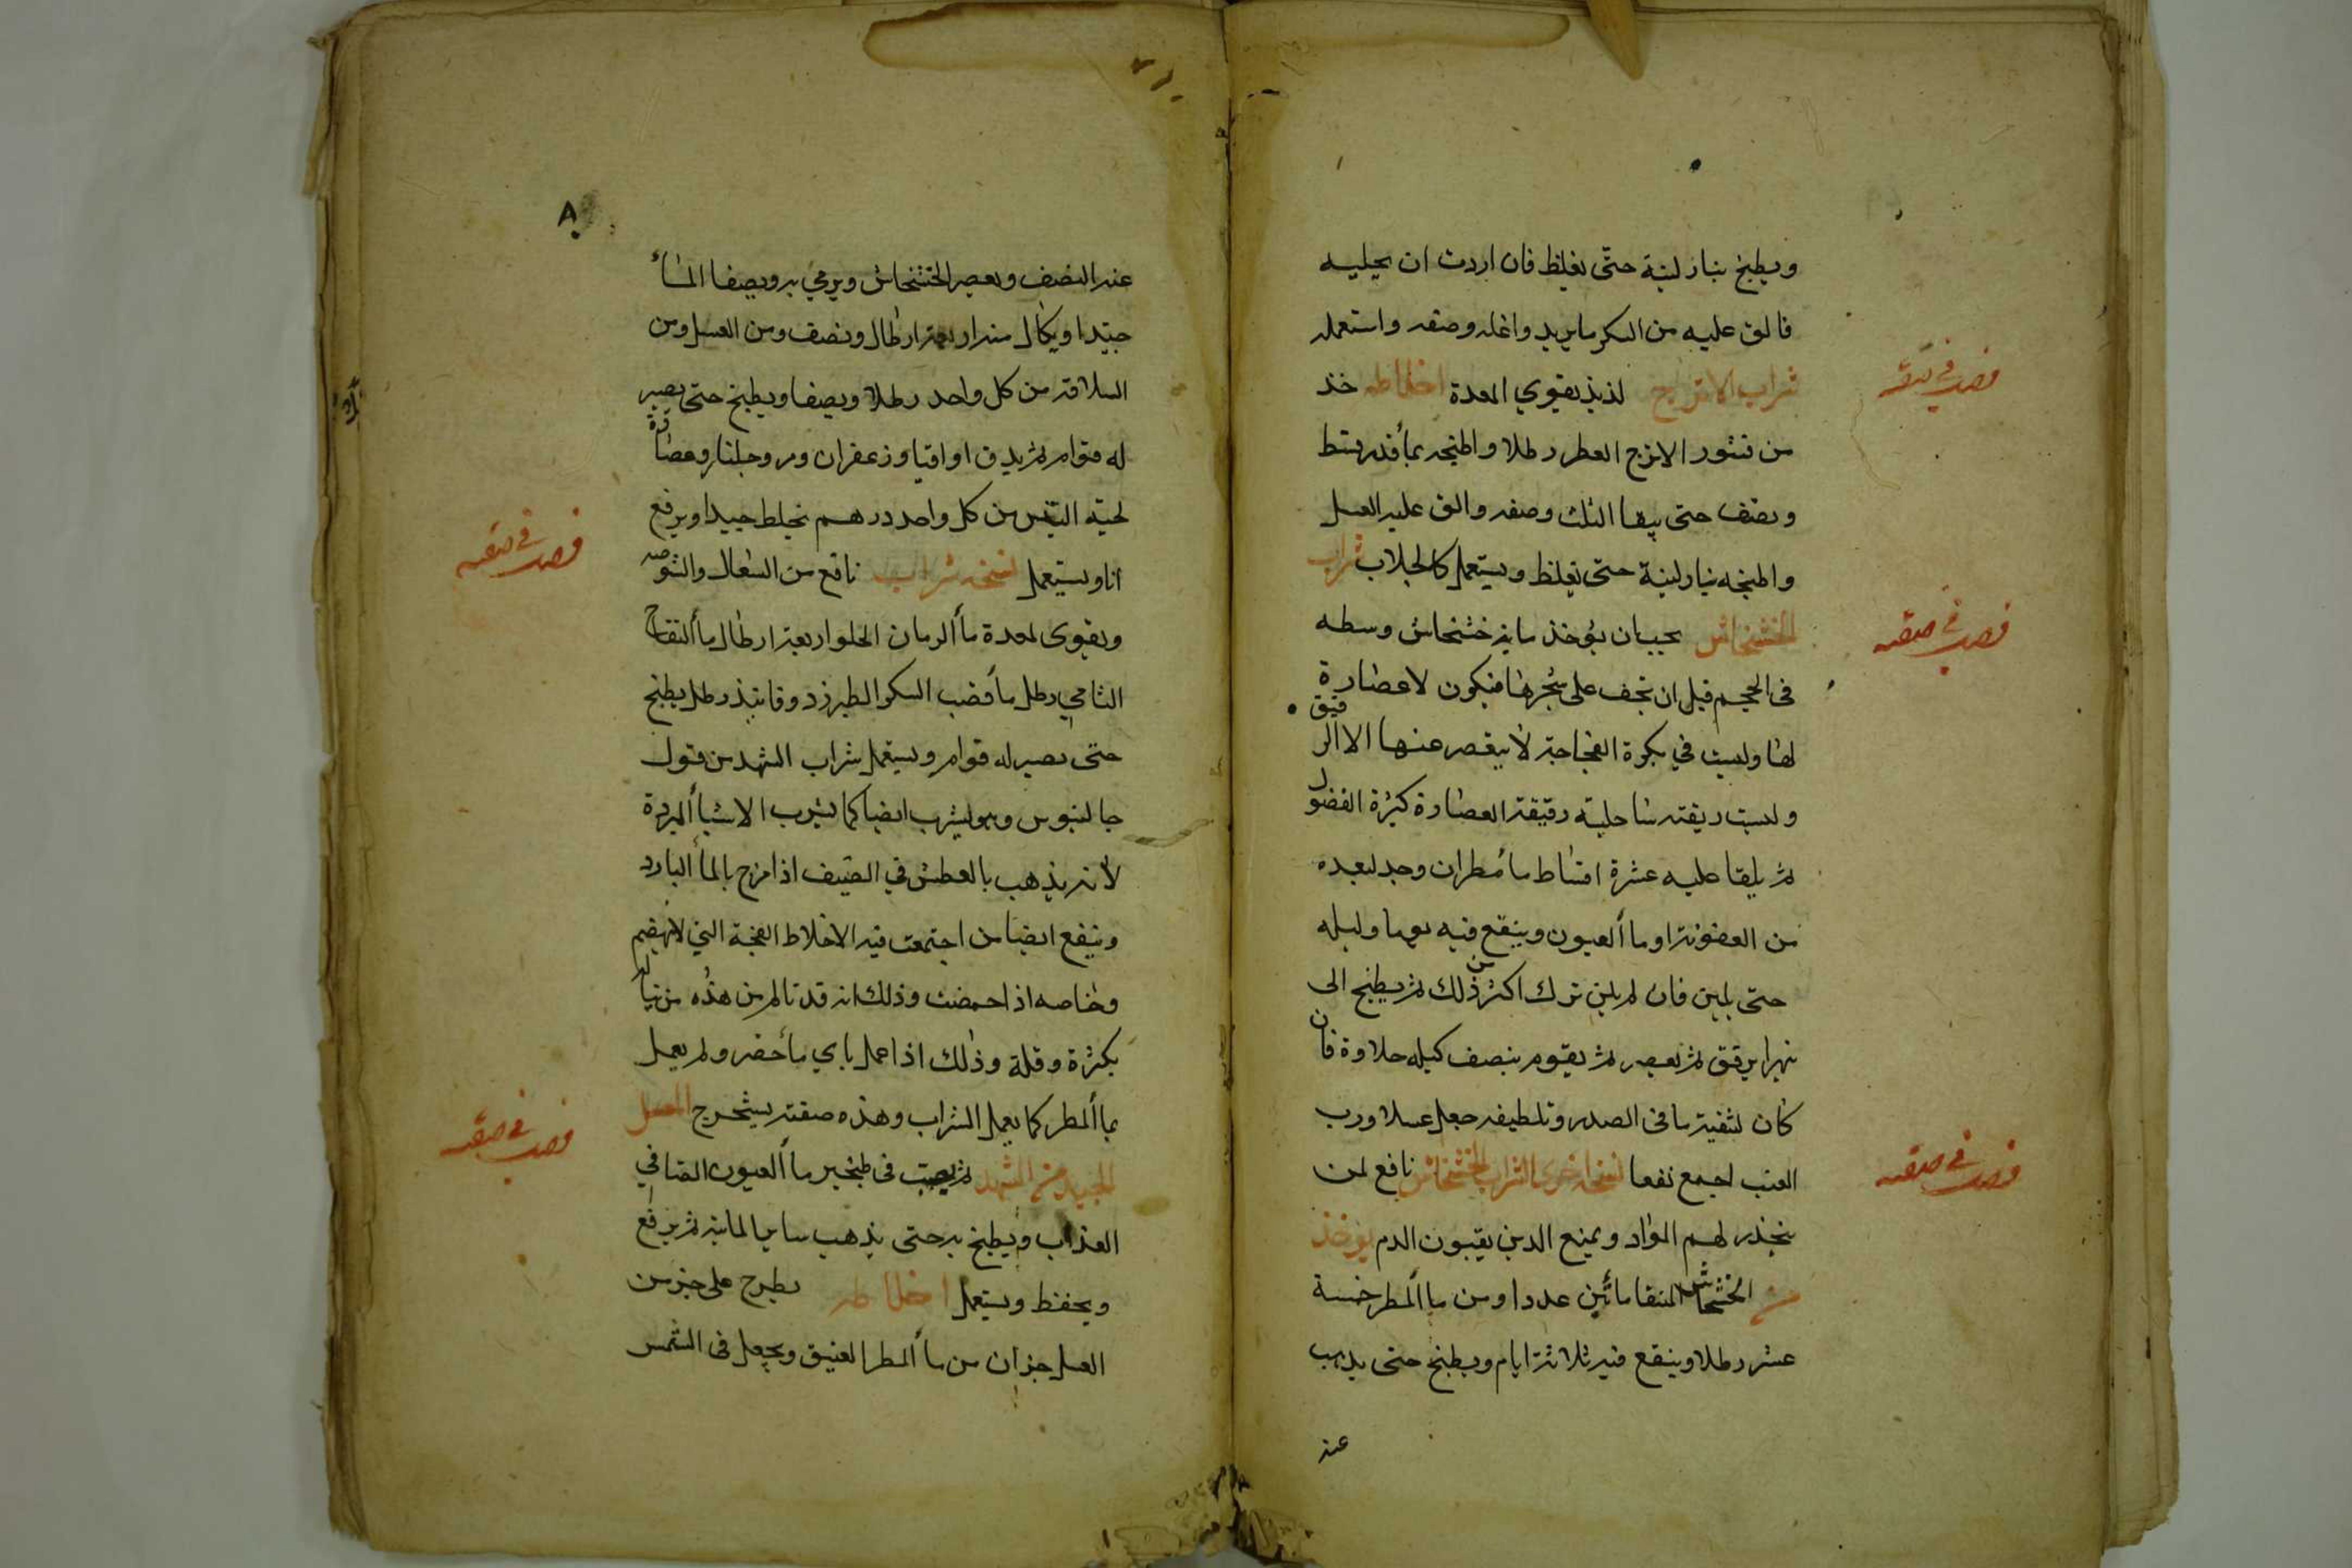 ويطبخ بنار لينة حتى يغلظ فان اردت ان يحليه
فالق عليه من السكر ما يريد واغله وصفه واستعمله
فصد في صفته
شراب الاترج لذيذ يقوي المعدة اخلاطه خذ
من قشور الاترج العطر رطلا واطبخه بمأ قدر قسط
ونصف حتى يبقا الثلث وصفه والق عليه العسل
واطبخه بنار لينة حتى يغلظ ويستعمل كالجلاب شراب
فصد في صفته
الخشخاش يجب ان يؤخذ ماية خشخاش وسطه
فى الحجم قبل ان تجف على شجرها فيكون لا عصارة
لها وليست في بكرة الفجاجة لا يقصر عنها الا الرقيق
وليست ريقته ساحلية رقيقة العصارة كثيرة الفضول
ثم يلقا عليه عشرة اقساط مأ مطر ان وجد لبعده
من العفونة او مأ العيون وينقع فيه يوما وليله
حتى يلين فان لم يلين ترك اكثر من ذلك ثم يطبخ الى
يتهرا برفق ثم يعصر ثم يقوم بنصف كيله حلاوة فان
كان لتنقية ما فى الصدر وتلطيفه جعل عسلا ورب
فصد في صفته
العنب اجمع نفعا نسخه اخرى الشراب الخشخاش نافع لمن
ينحدر لهم المواد ويمنع الدين يقيون الدم يوخذ
من الخشخاش المنقا مأتين عددا ومن مأ المطر خمسة
عشر رطلا وينقع فيه ثلاثة ايام ويطبخ حتى يذهب
عند
٨٠
عند النصف ويعصر الخشخاش ويرمي به ويصفا المأ
جيدا ويكال منه اربعة ارطال ونصف ومن العسل ومن
السلاقة من كل واحد رطلا ويصفا ويطبخ حتى يصير
له قوام ثم يدق اواقيا وزعفران ومر وجلنار وعصارة
لحية التيس من كل واحد درهم يخلط جيدا ويرفع
فصد في صفته
انا ويستعمل نسخه شراب نافع من السعال والشوصه
ويقوى لمعدة مأ الرمان الحلو اربعة ارطال مأ التفاح
الشامي رطل مأ قضب السكر الطبرزد وفانيذ رطل يطبخ
حتى يصير له قوام ويستعمل شراب الشهد من قول
جالينوس وهو يشرب ايضا كما يشرب الاشيأ المبردة
لأنه يذهب بالعطش في الصيف اذا مزج بالمأ البارد
وينفع ايضا من اجتمعت فيه الاخلاط الفجة التي لا تهضم
وخاصه اذا حمضت وذلك انه قد تالم من هذه من نياله
بكثرة وقلة وذلك اذا عمل باي مأ حضر ولم يعمل
بمأ المطر كما يعمل الشراب وهذه صفته يستخرج العسل
فصد في صفته
الجيد من الشهد ثم يصب فى طنجير مأ العيون الصافي
العذاب ويطبخ به حتى يذهب ساير المايه ثم يرفع
ويحفظ ويستعمل اخلاطه يطرح على جز من
العسل جزان من مأ المطر العتيق ويجعل فى الشمس